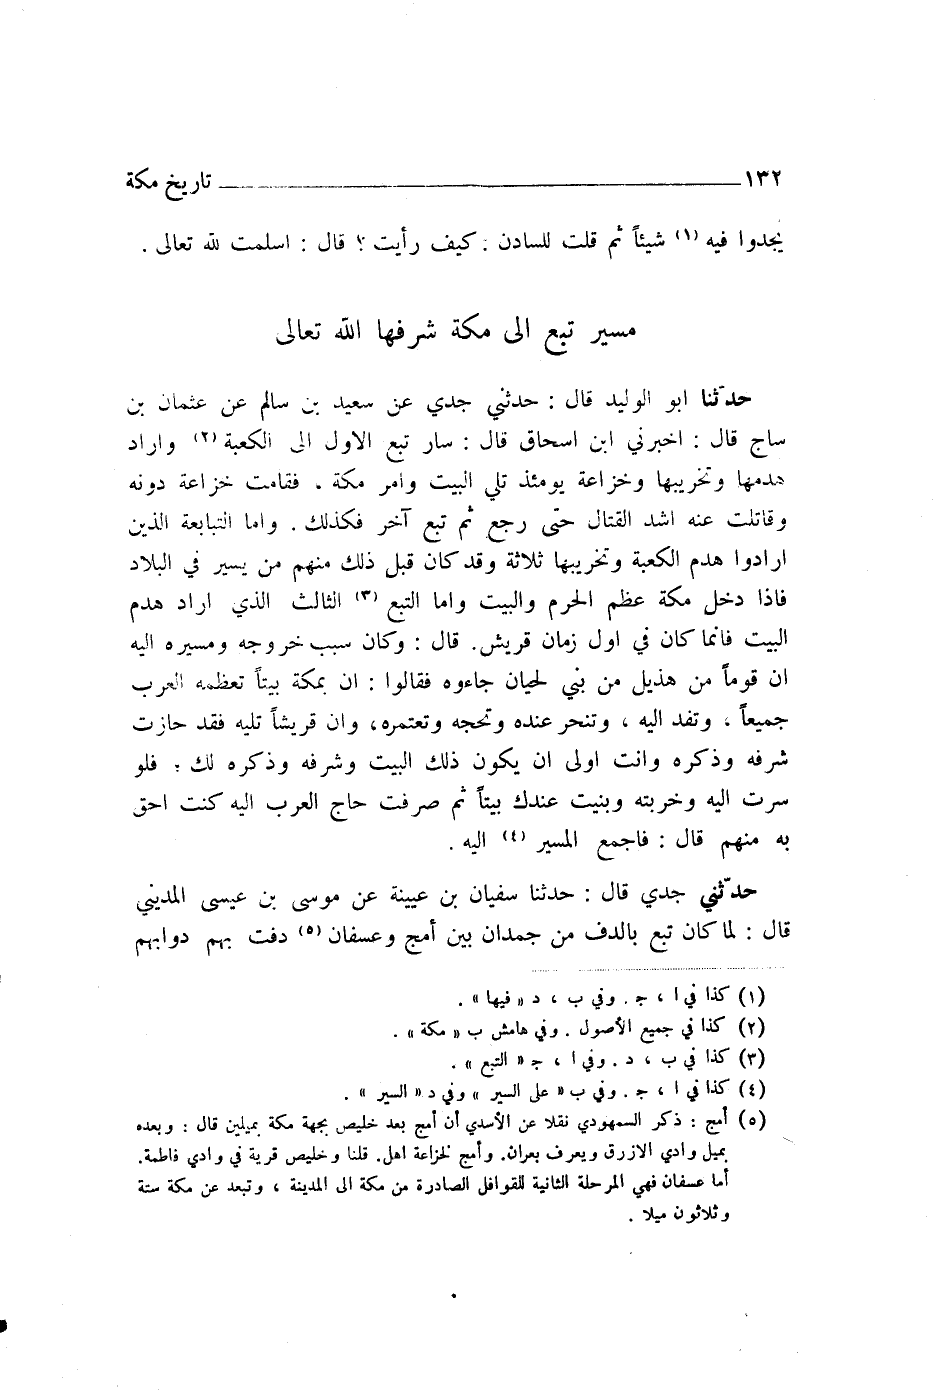 ١٣٢ تاريخ مكة
يجدوا فيه (١) شيئاً ثم قلت للسادن : كيف رأيت ؟ قال : اسلمت لله تعالى .
مسير تبع الى مكة شرفها الله تعالى
حدّثنا ابو الوليد قال : حدثني جدي عن سعيد بن سالم عن عثمان بن
ساج قال : اخبرني ابن اسحاق قال : سار تبع الاول الى الكعبة (٢) واراد
هدمها وتخريبها وخزاعة يومئذ تلي البيت وامر مكة . فقامت خزاعة دونه
وقاتلت عنه اشد القتال حتى رجع ثم تبع آخر فكذلك . واما التبابعة الذين
ارادوا هدم الكعبة وتخريبها ثلاثة وقد كان قبل ذلك منهم من يسير في البلاد
فاذا دخل مكة عظم الحرم والبيت واما التبع (٣) الثالث الذي اراد هدم
البيت فانما كان في اول زمان قريش. قال : وكان سبب خروجه ومسيره اليه
ان قوماً من هذيل من بني لحيان جاءوه فقالوا : ان بمكة بيتاً تعظمه العرب
جميعاً ، وتفد اليه ، وتنحر عنده وتحجه وتعتمره، وان قريشاً تليه فقد حازت
شرفه وذكره وانت اولى ان يكون ذلك البيت وشرفه وذكره لك : فلو
سرت اليه وخربته وبنيت عندك بيتاً ثم صرفت حاج العرب اليه كنت احق
به منهم قال : فاجمع المسير (٤) اليه .
حدّثني جدي قال : حدثنا سفيان بن عيينة عن موسى بن عيسى المديني
قال : لما كان تبع بالدف من جمدان بين أمج وعسفان (٥) دفت بهم دوابهم
(١) كذا في ا ، ج . وفي ب ، د « فيها » .
(٢) كذا في جميع الأصول . وفي هامش ب « مكة » .
(٣) كذا في ب ، د . وفي ا ، ج « التبع » .
(٤) كذا في ا ، ج . وفي ب « على السير » وفي د « السير » .
(٥) أمج : ذكر السمهودي نقلا عن الأسدي أن أمج بعد خليص بجهة مكة بميلين قال : وبعده
بميل وادي الازرق ويعرف بعران. وأمج لخزاعة اهل. قلنا وخليص قرية في وادي فاطمة.
أما عسفان فهي المرحلة الثانية للقوافل الصادرة من مكة الى المدينة ، وتبعد عن مكة ستة
وثلاثون ميلا .